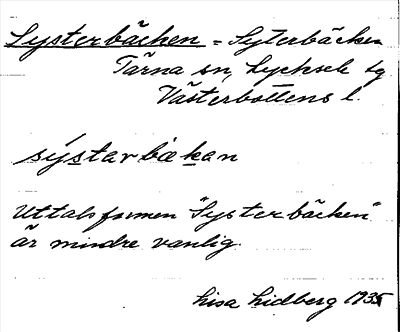 Systerbäcken = Syterbäcken
Tärna sn, Lycksele lg
Västerbottens l.
sýstarbäkan
Uttalsformen "Systerbäcken"
är mindre vanlig.
Lisa Lidberg 1935